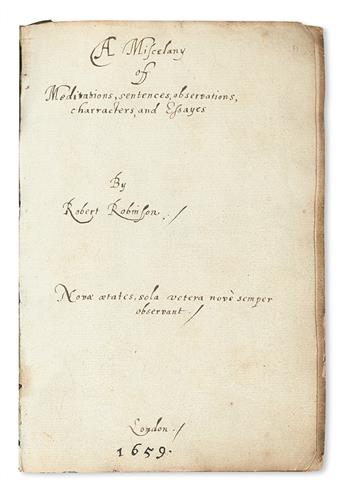 A Miscelany
of
Meditations, sentences, observations,
charracters, and Essayes
By
Robert Robinson ./
Novæ ætates, sola vetera novè semper
observant ./
London ./
1659.